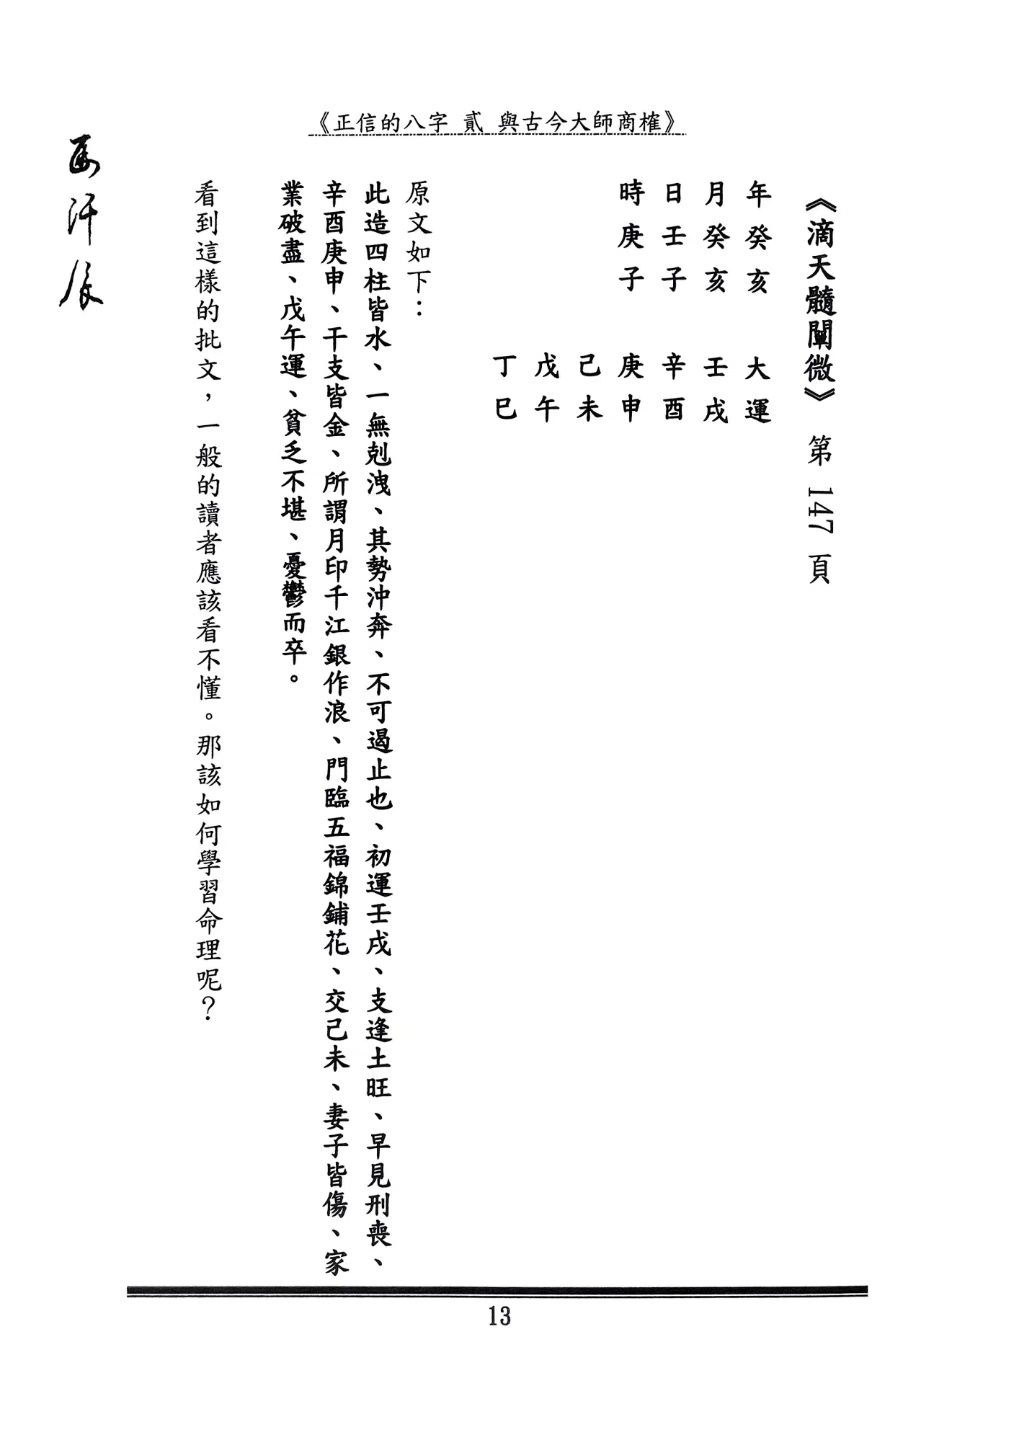 《正信的八字 貳 與古今大師商榷》
《滴天髓闡微》 第 147 頁
年癸亥 大運
月癸亥 壬戌
日壬子 辛酉
時庚子 庚申
己未
戊午
丁巳
原文如下：
此造四柱皆水、一無剋洩、其勢沖奔、不可遏止也、初運壬戌、支逢土旺、早見刑喪、
辛酉庚申、干支皆金、所謂月印千江銀作浪、門臨五福錦鋪花、交己未、妻子皆傷、家
業破盡、戊午運、貧乏不堪、憂鬱而卒。
看到這樣的批文，一般的讀者應該看不懂。那該如何學習命理呢？
13